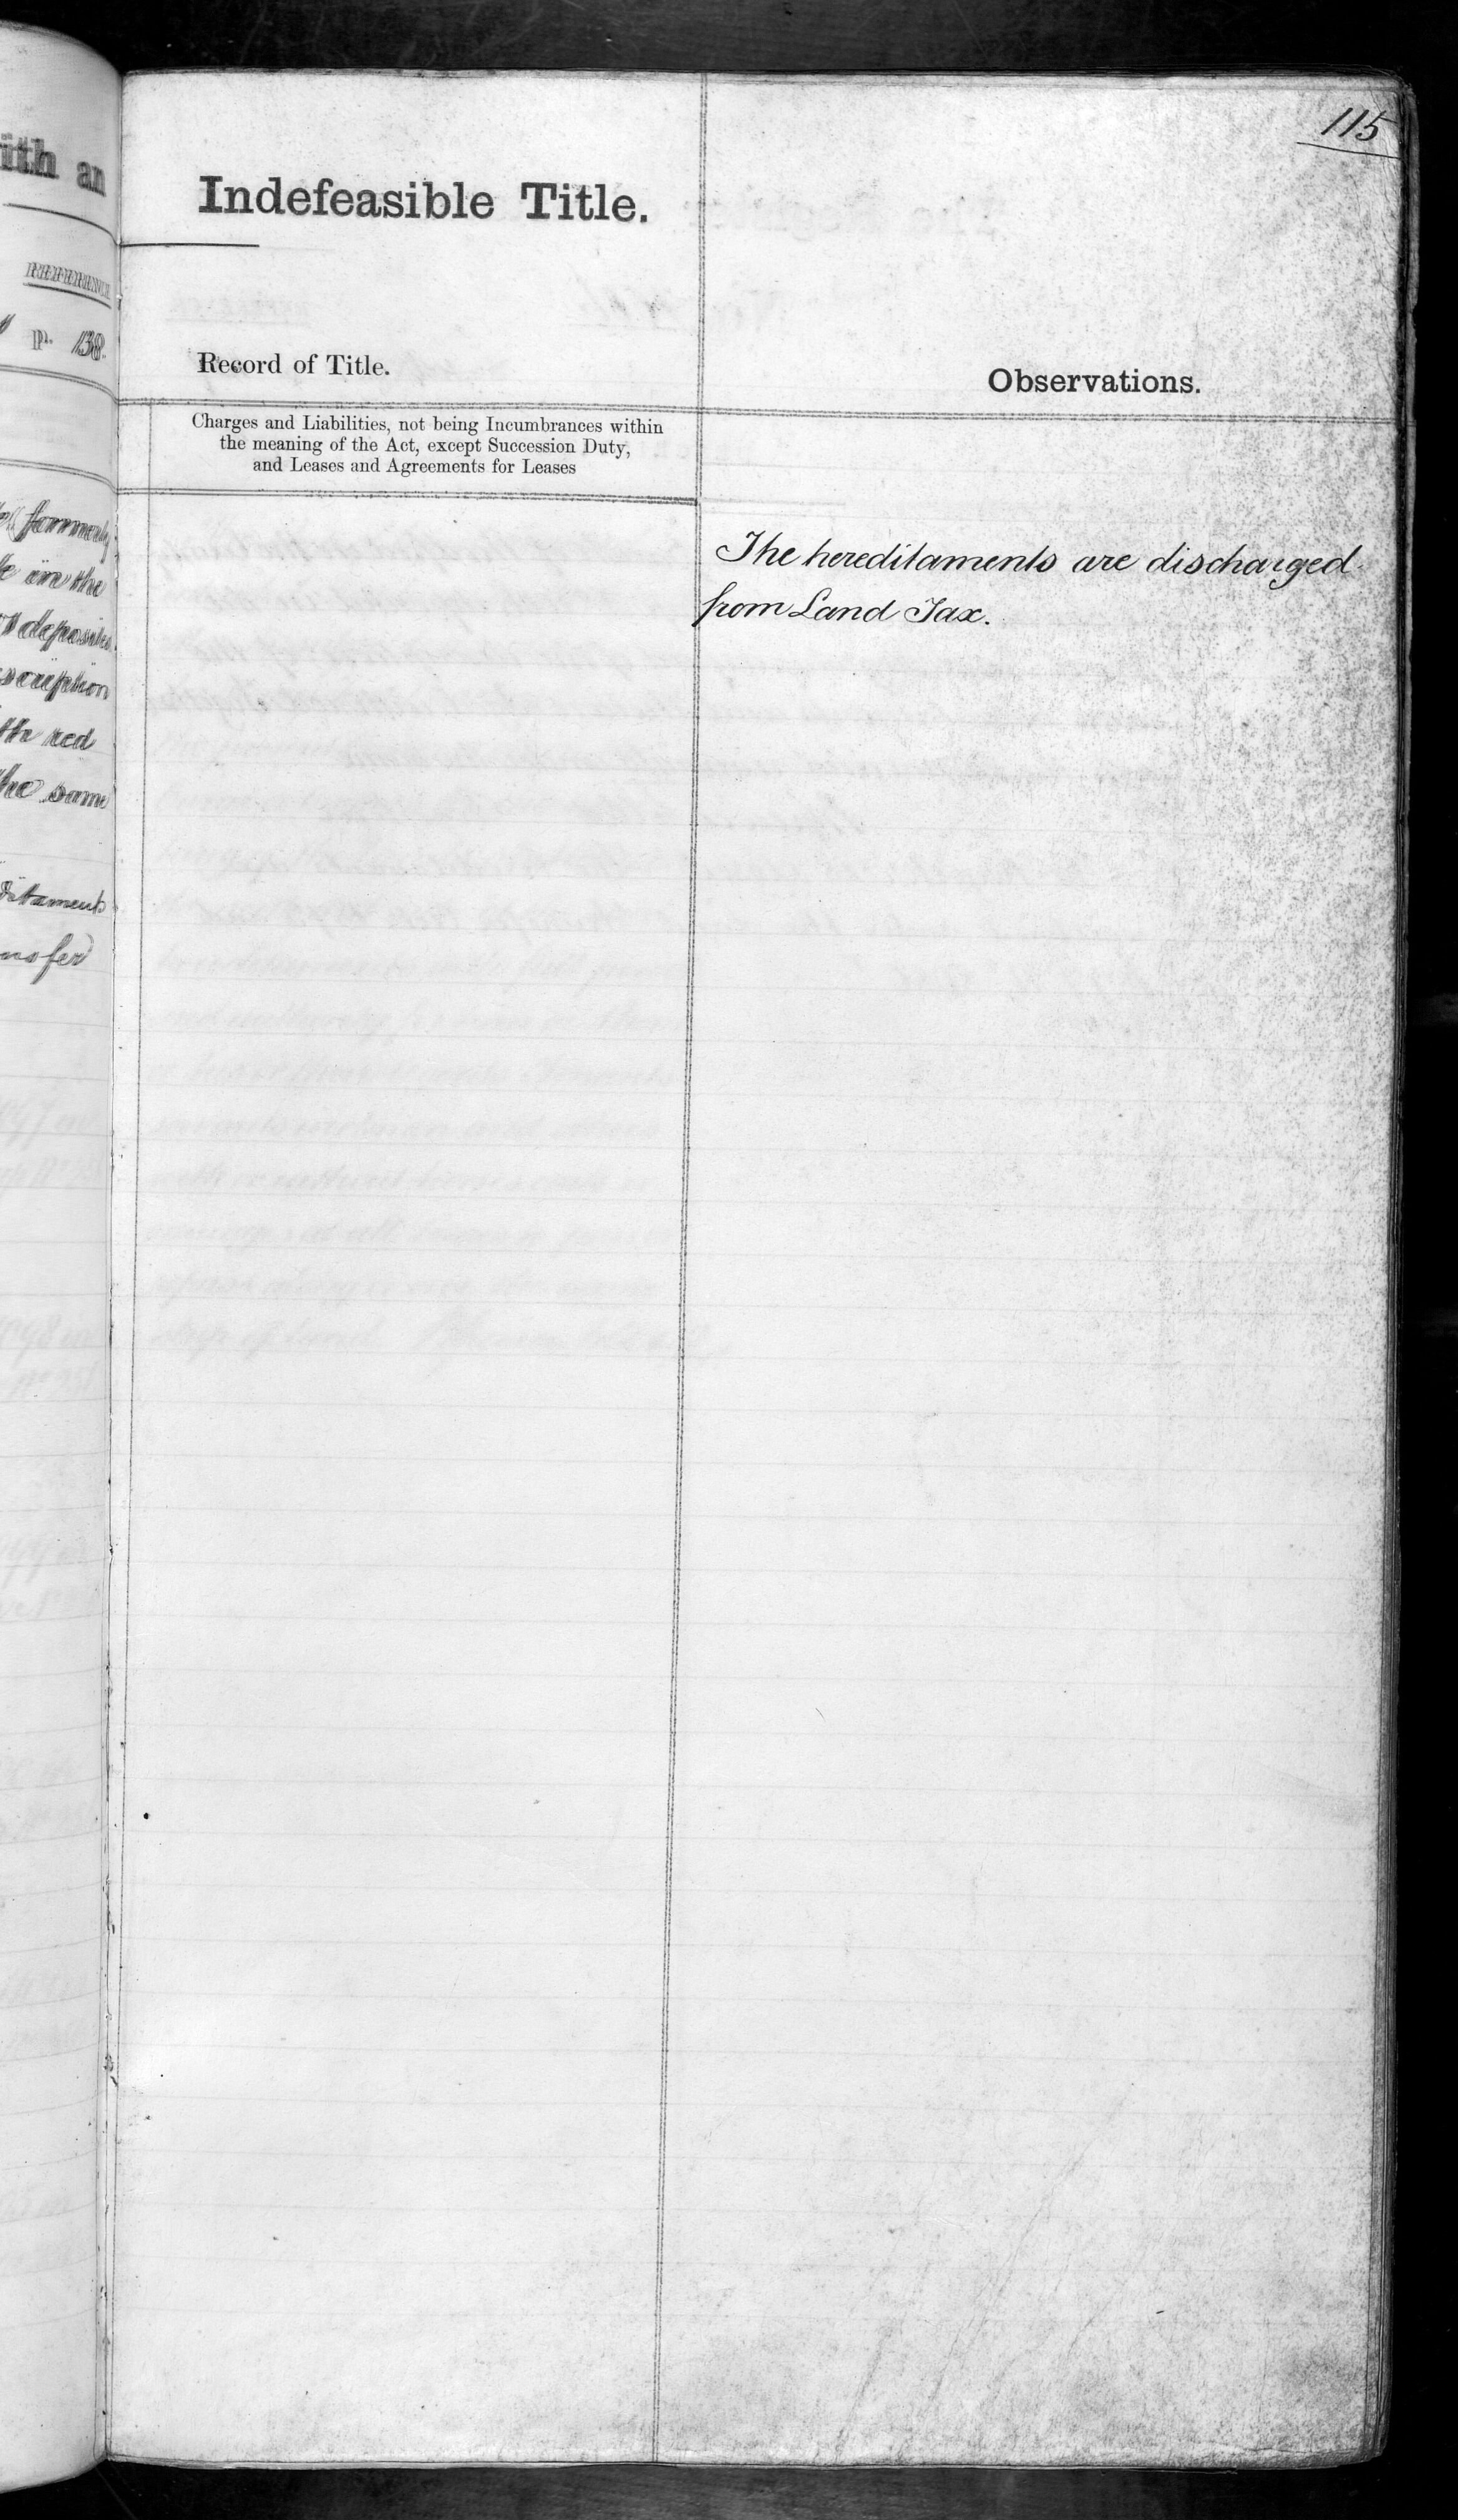 115
Indefeasible Title.
Record of Title.
Observations.
Charges and Liabilities, not being Incumbrances within
the meaning of the Act, except Succession Duty,
and Leases and Agreements for Leases
The hereditaments are discharged
from Land Tax.
ith an
REFERENCE
P. 138.
formerly
in the
deposited
the red
the same